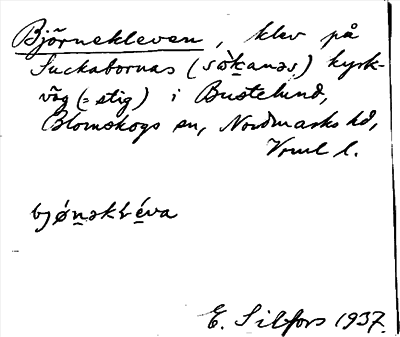 Björnekleven, klev på
Suckabornas (sòkanəs) kyrk-
väg (= stig) i Bustelund,
Blomskogs sn, Nordmarks hd,
Vrml l.
bjǿnəkléva
E. Silfors 1937.